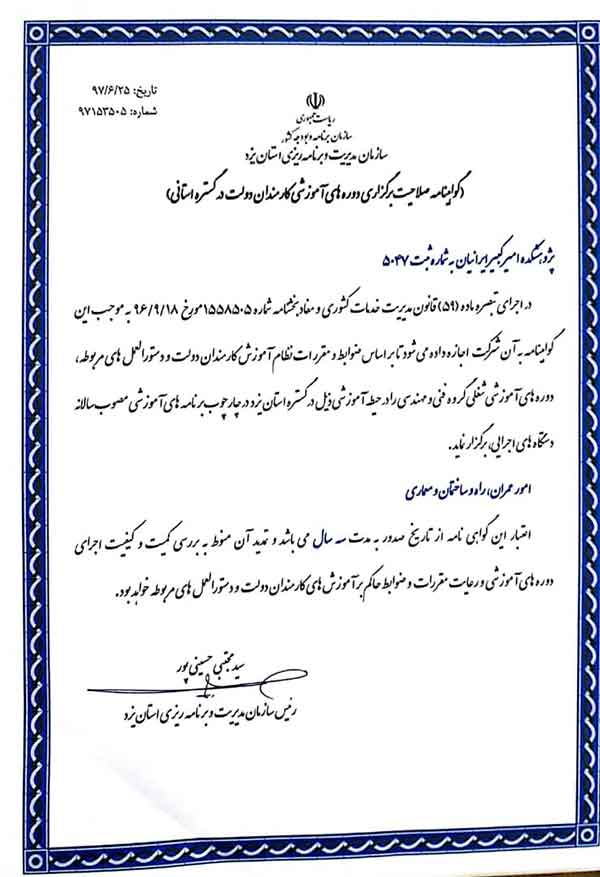 تاریخ: ۹۷/۶/۲۵
شماره: ۹۷۱۵۳۵۰۵
ریاست جمهوری
سازمان برنامه و بودجه کشور
سازمان مدیریت و برنامه ریزی استان یزد
(گواینامه صلاحیت برگزاری دوره های آموزشی کارمندان دولت در گستره استانی)
پژوهشکده امیرکبیر ایرانیان به شماره ثبت ۵۰۴۷
در اجرای تبصره ماده (۵۹) قانون مدیریت خدمات کشوری و مفاد بخشنامه شماره ۱۵۵۸۵۰۵ مورخ ۹۶/۹/۱۸ به موجب این
گواینامه به آن شرکت اجازه داده می شود تا بر اساس ضوابط و مقررات نظام آموزش کارمندان دولت و دستورالعمل های مربوطه،
دوره های آموزشی شغلی گروه فنی و مهندسی را در حیطه آموزشی ذیل در گستره استان یزد در چارچوب برنامه های آموزشی مصوب سالانه
دستگاه های اجرایی، برگزار نماید.
امور عمران، راه و ساختمان و معماری
اعتبار این گواهی نامه از تاریخ صدور به مدت سه سال می باشد و تمدید آن منوط به بررسی کمیت و کیفیت اجرای
دوره های آموزشی و رعایت مقررات و ضوابط حاکم بر آموزش های کارمندان دولت و دستورالعمل های مربوطه خواهد بود.
سید مجتبی حسینی پور
رئیس سازمان مدیریت و برنامه ریزی استان یزد